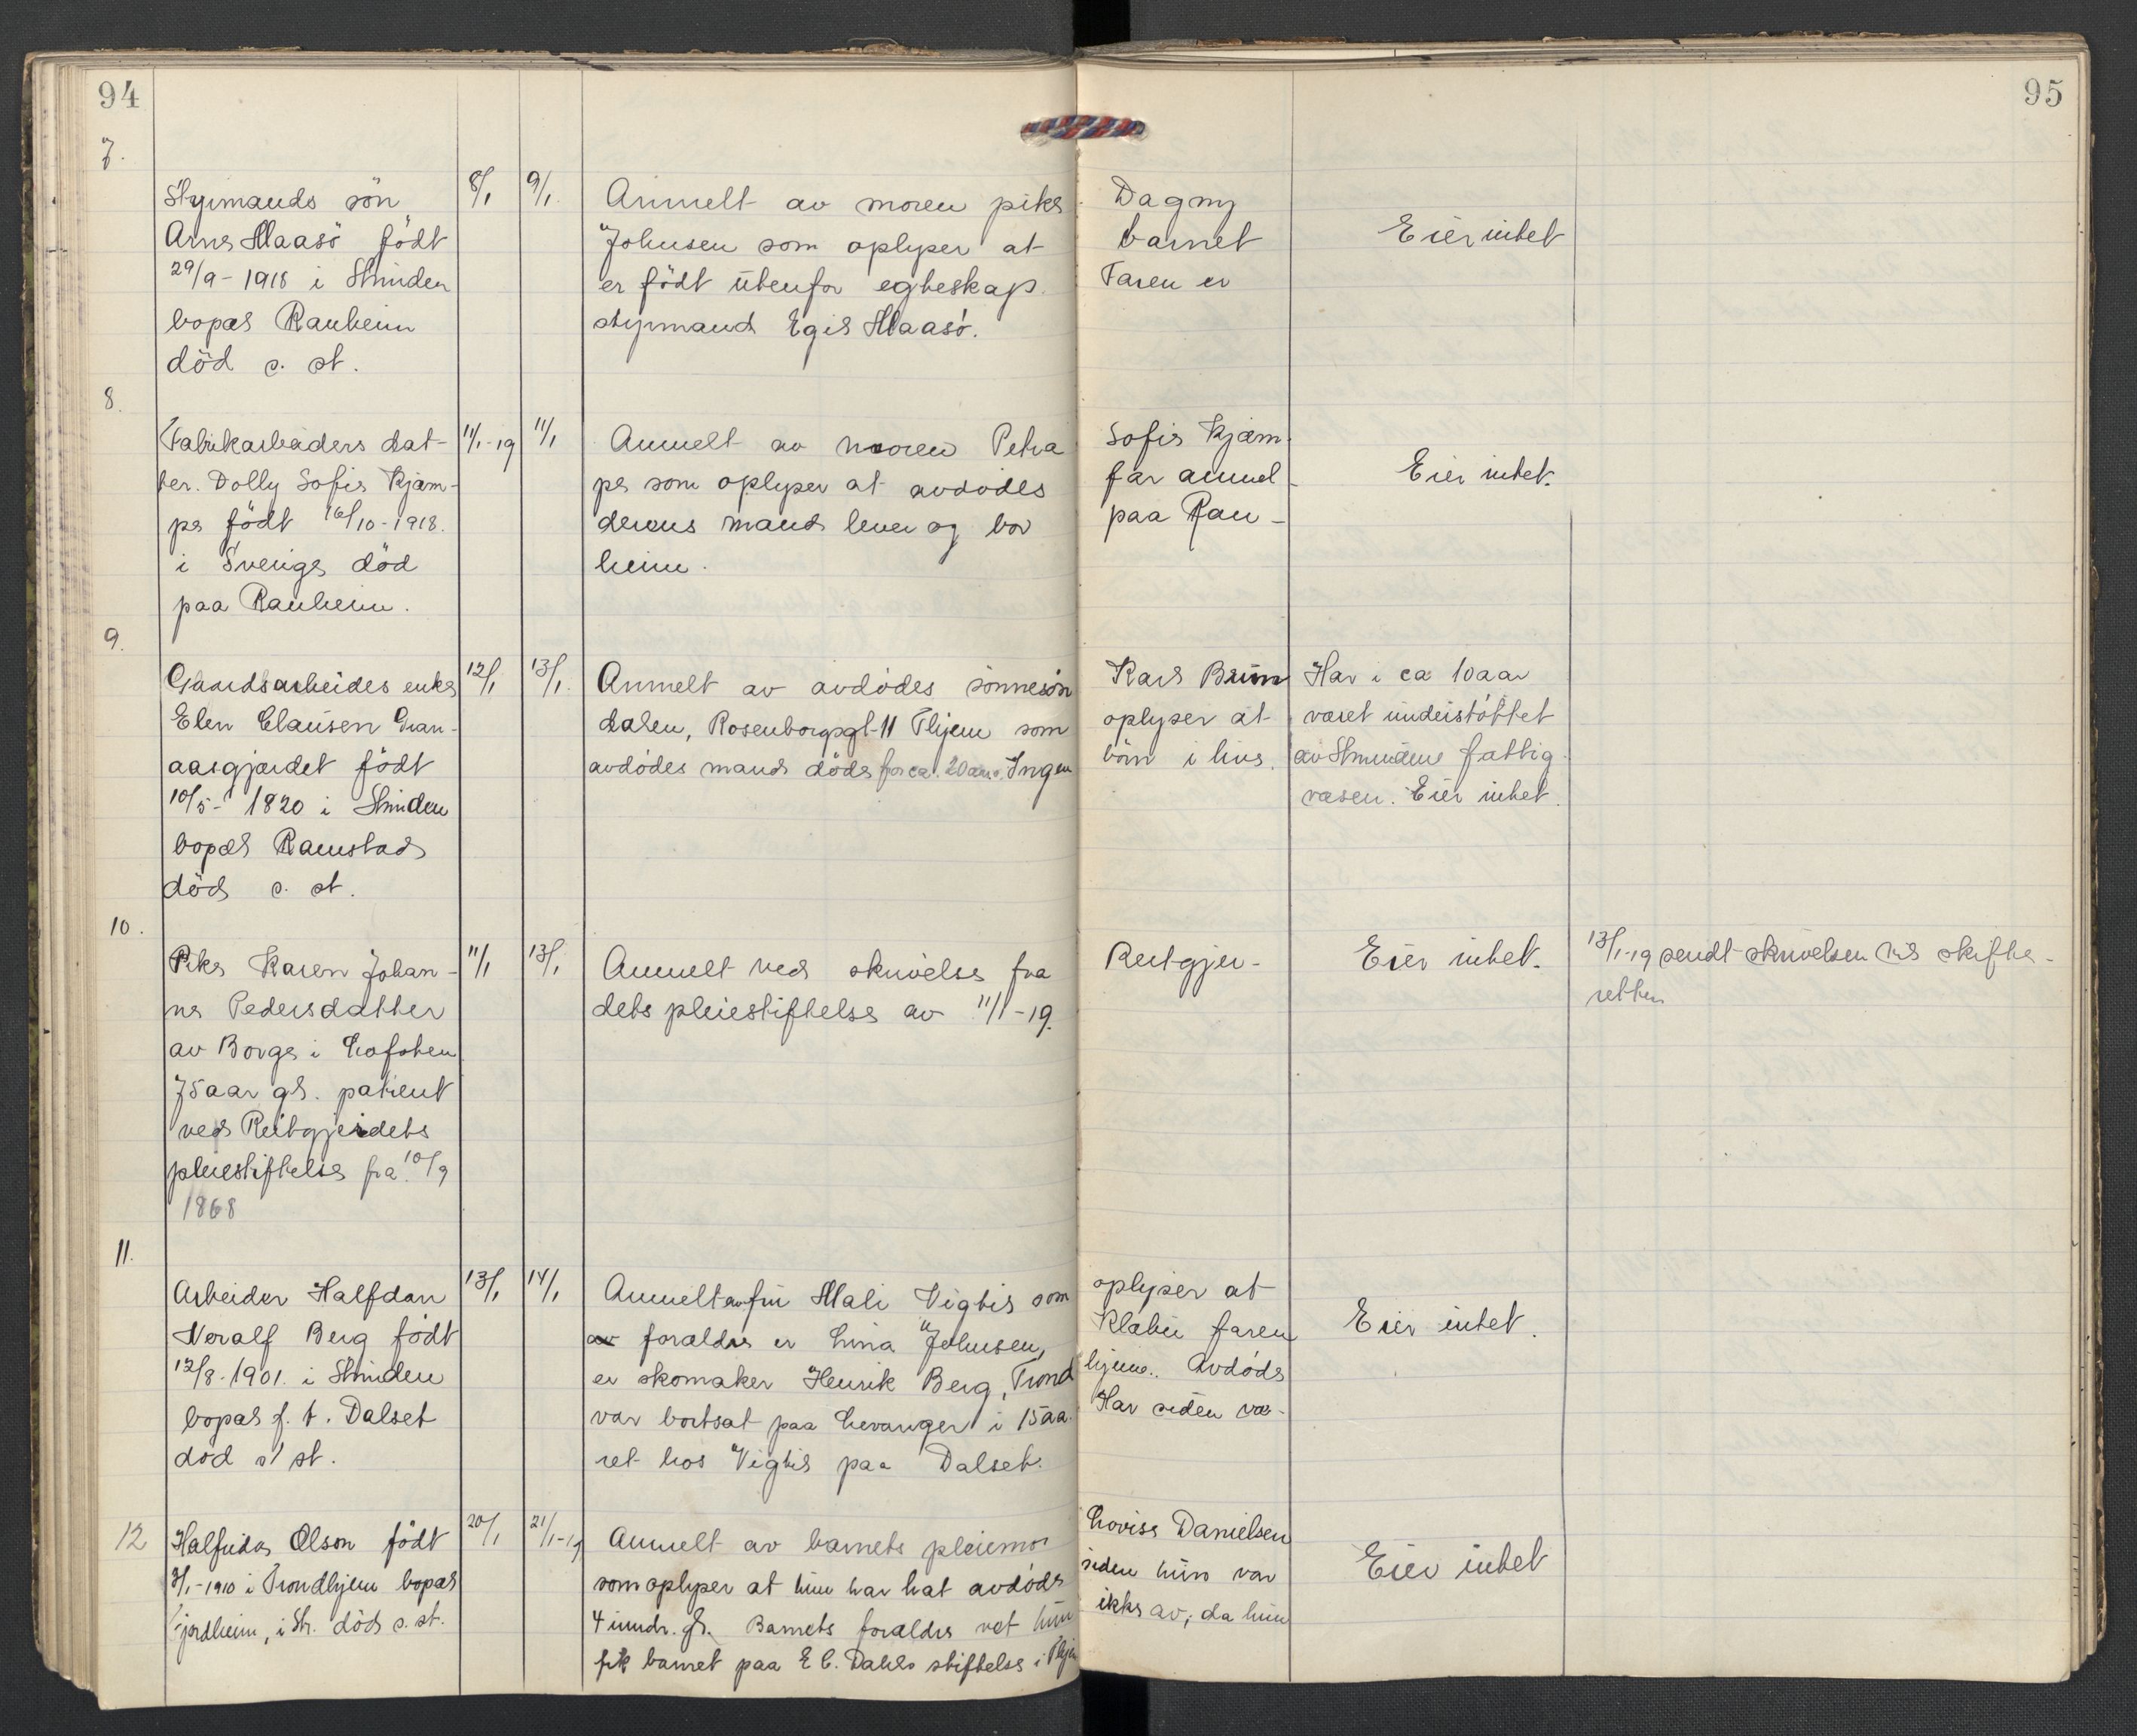 94
95
7.
Styrmands sön 8/1 9/1 Anmelt av moren pike Dagny
Arne Maasö födt Johnsen som oplyser at barnet Eier intet
29/9-1918 i Strinden er födt utenfor egteskap. Faren er
bopæl Ranheim styrmand Egil Maasö.
död s. st.
8.
Fabrikarbeiders dat- 11/1-19 11/1 Anmelt av moren Petra Sofie Kjæm-
ter. Dolly Sofie Kjæm- pe som oplyser at avdödes far anmel- Eier intet.
pe födt 16/10-1918. derens mand lever og bor paa Ran-
i Sverige död heim.
paa Ranheim.
9.
Gaardsarbeides enke 12/1 13/1. Anmelt av avdödes sönnesön Karl Bruun Har i ca 10 aar
Elen Clausen Gran- dalen, Rosenborggt. 11 Thjem som oplyser at været understöttet
aasgjærdet födt avdödes mand döde for ca. 20 aar s. Ingen börn i live. av Strindens fattig-
10/5-1820 i Strinden væsen. Eier intet.
bopæl Ramstad
död s. st.
10.
Pike Karen Johan- 11/1 13/1 Anmelt ved skrivelse fra Reitgjer- Eier intet. 13/1-19 sendt skrivelsen til skifte-
ne Pedersdatter dets pleiestiftelse av 11/1-19. retten
av Borge i Lofoten
75 aar gl. patient
ved Reitgjerdets
pleiestiftelse fra 10/9
1868
11.
Arbeider Halfdan 13/1 14/1 Anmelt av fru Mali Vigtil som oplyser at
Neralf Berg födt av forældre er Lina Johnsen, Klæbu faren Eier intet.
12/8-1901. i Strinden er skomaker Henrik Berg, Trond hjem.. Avdöde
bopæl f. t. Dalset var bortsat paa Levanger i 15 aa. Har siden væ-
död s/ st. ret hos Vigtil paa Dalset.
12 Halfrida Olson födt 20/1 21/1-19 Anmelt av barnets pleiemor Lovise Danielsen
3/1-1910 i Trondhjem bopæl som oplyser at hun har hat avdöde siden hun var Eier intet
Fjordheim, i Str. död s. st. 4 mndr. gl. Barnets forældre vet hun ikke av, da hun
fik barnet paa E C. Dahls stiftelse i Thjem